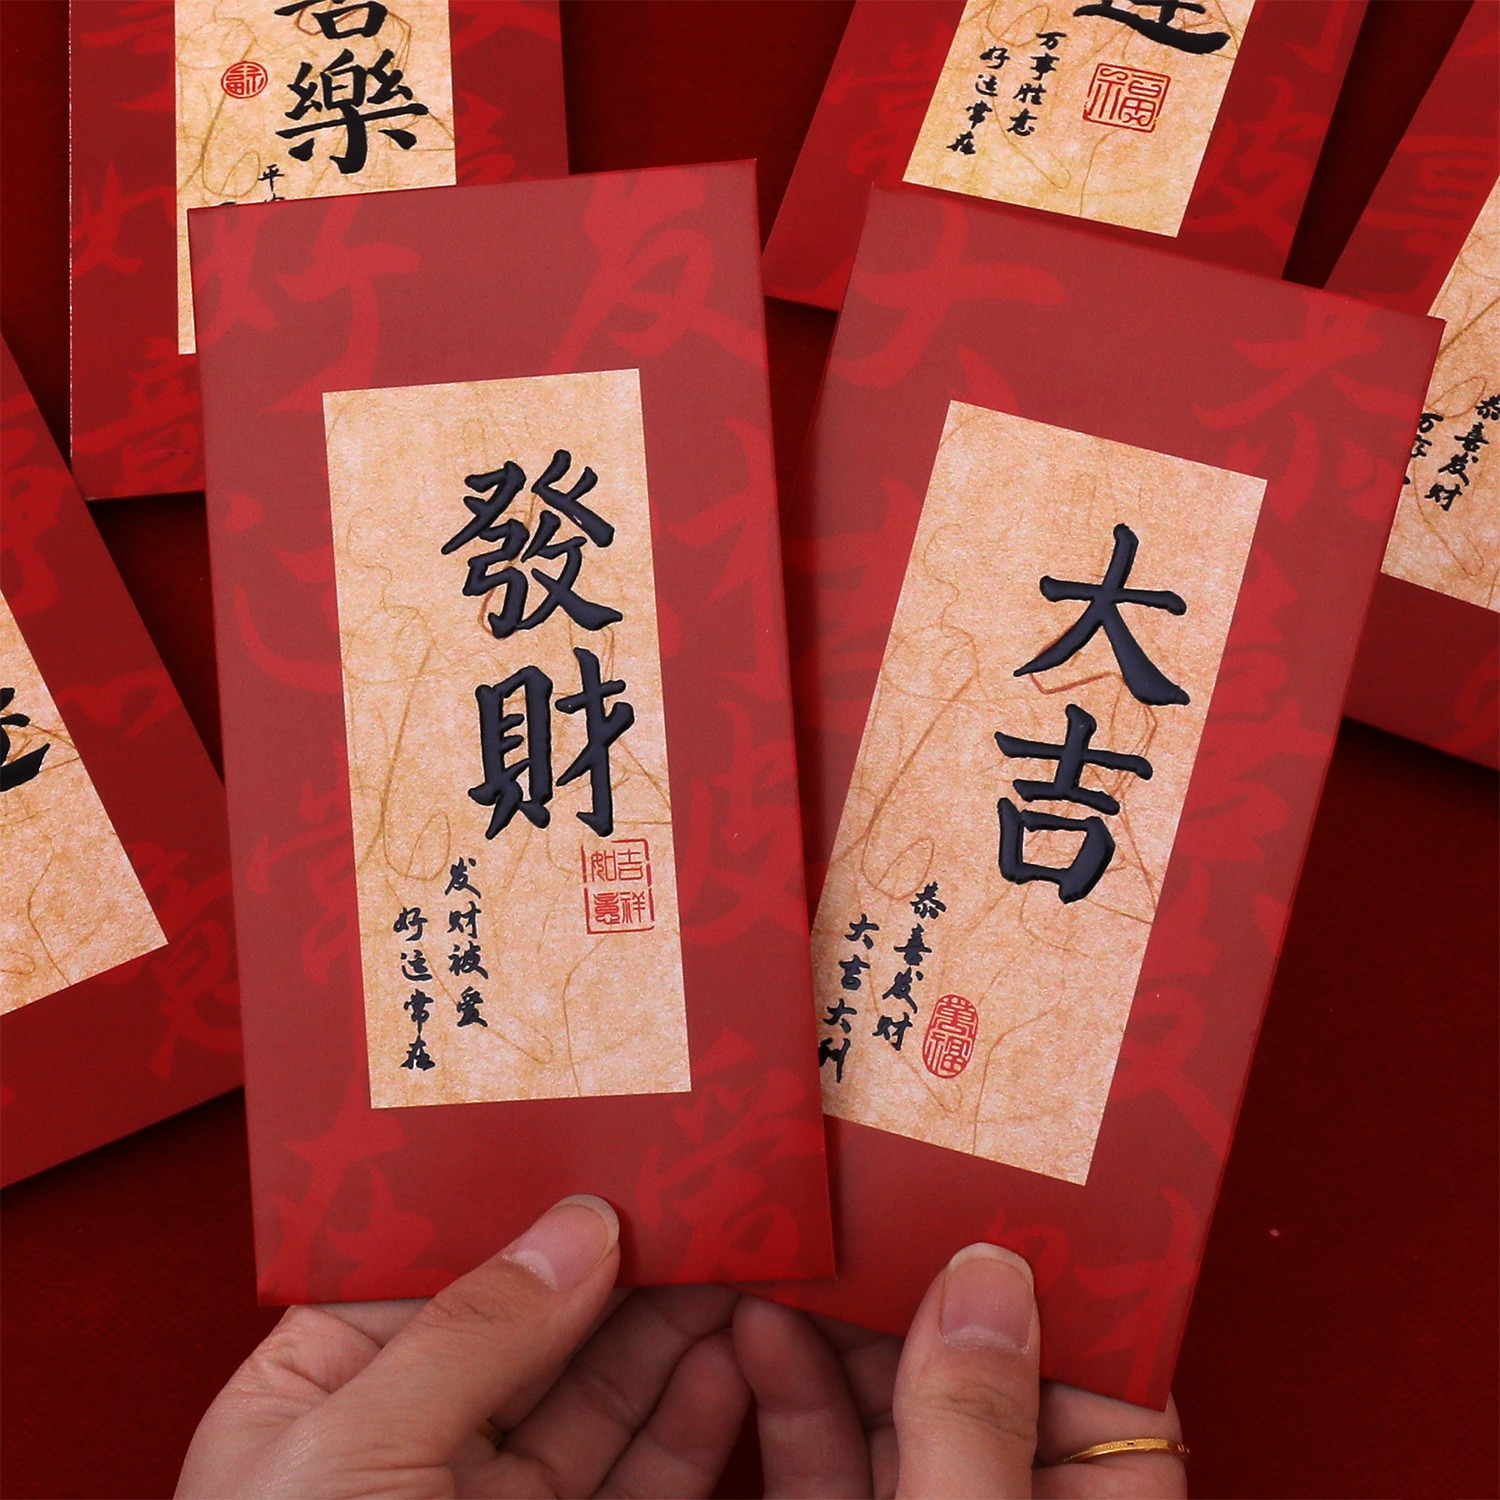 發財
吉祥如意
发财被爱
好运常在
大吉
恭喜发财
大吉大利
萬福
樂
福
万事胜意
好运常在
福
恭喜发财